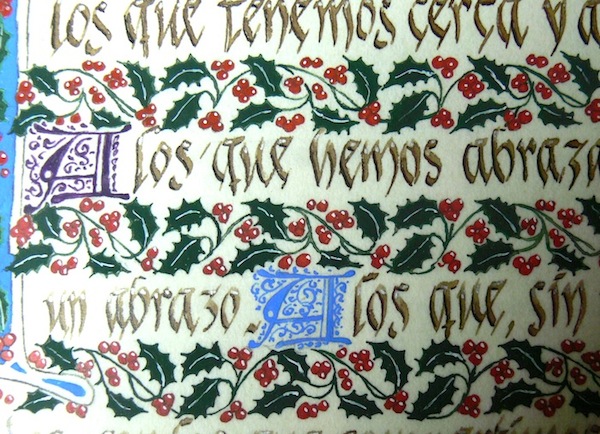 los que tenemos cerca y a
A los que hemos abraza
un abrazo. A los que, sin